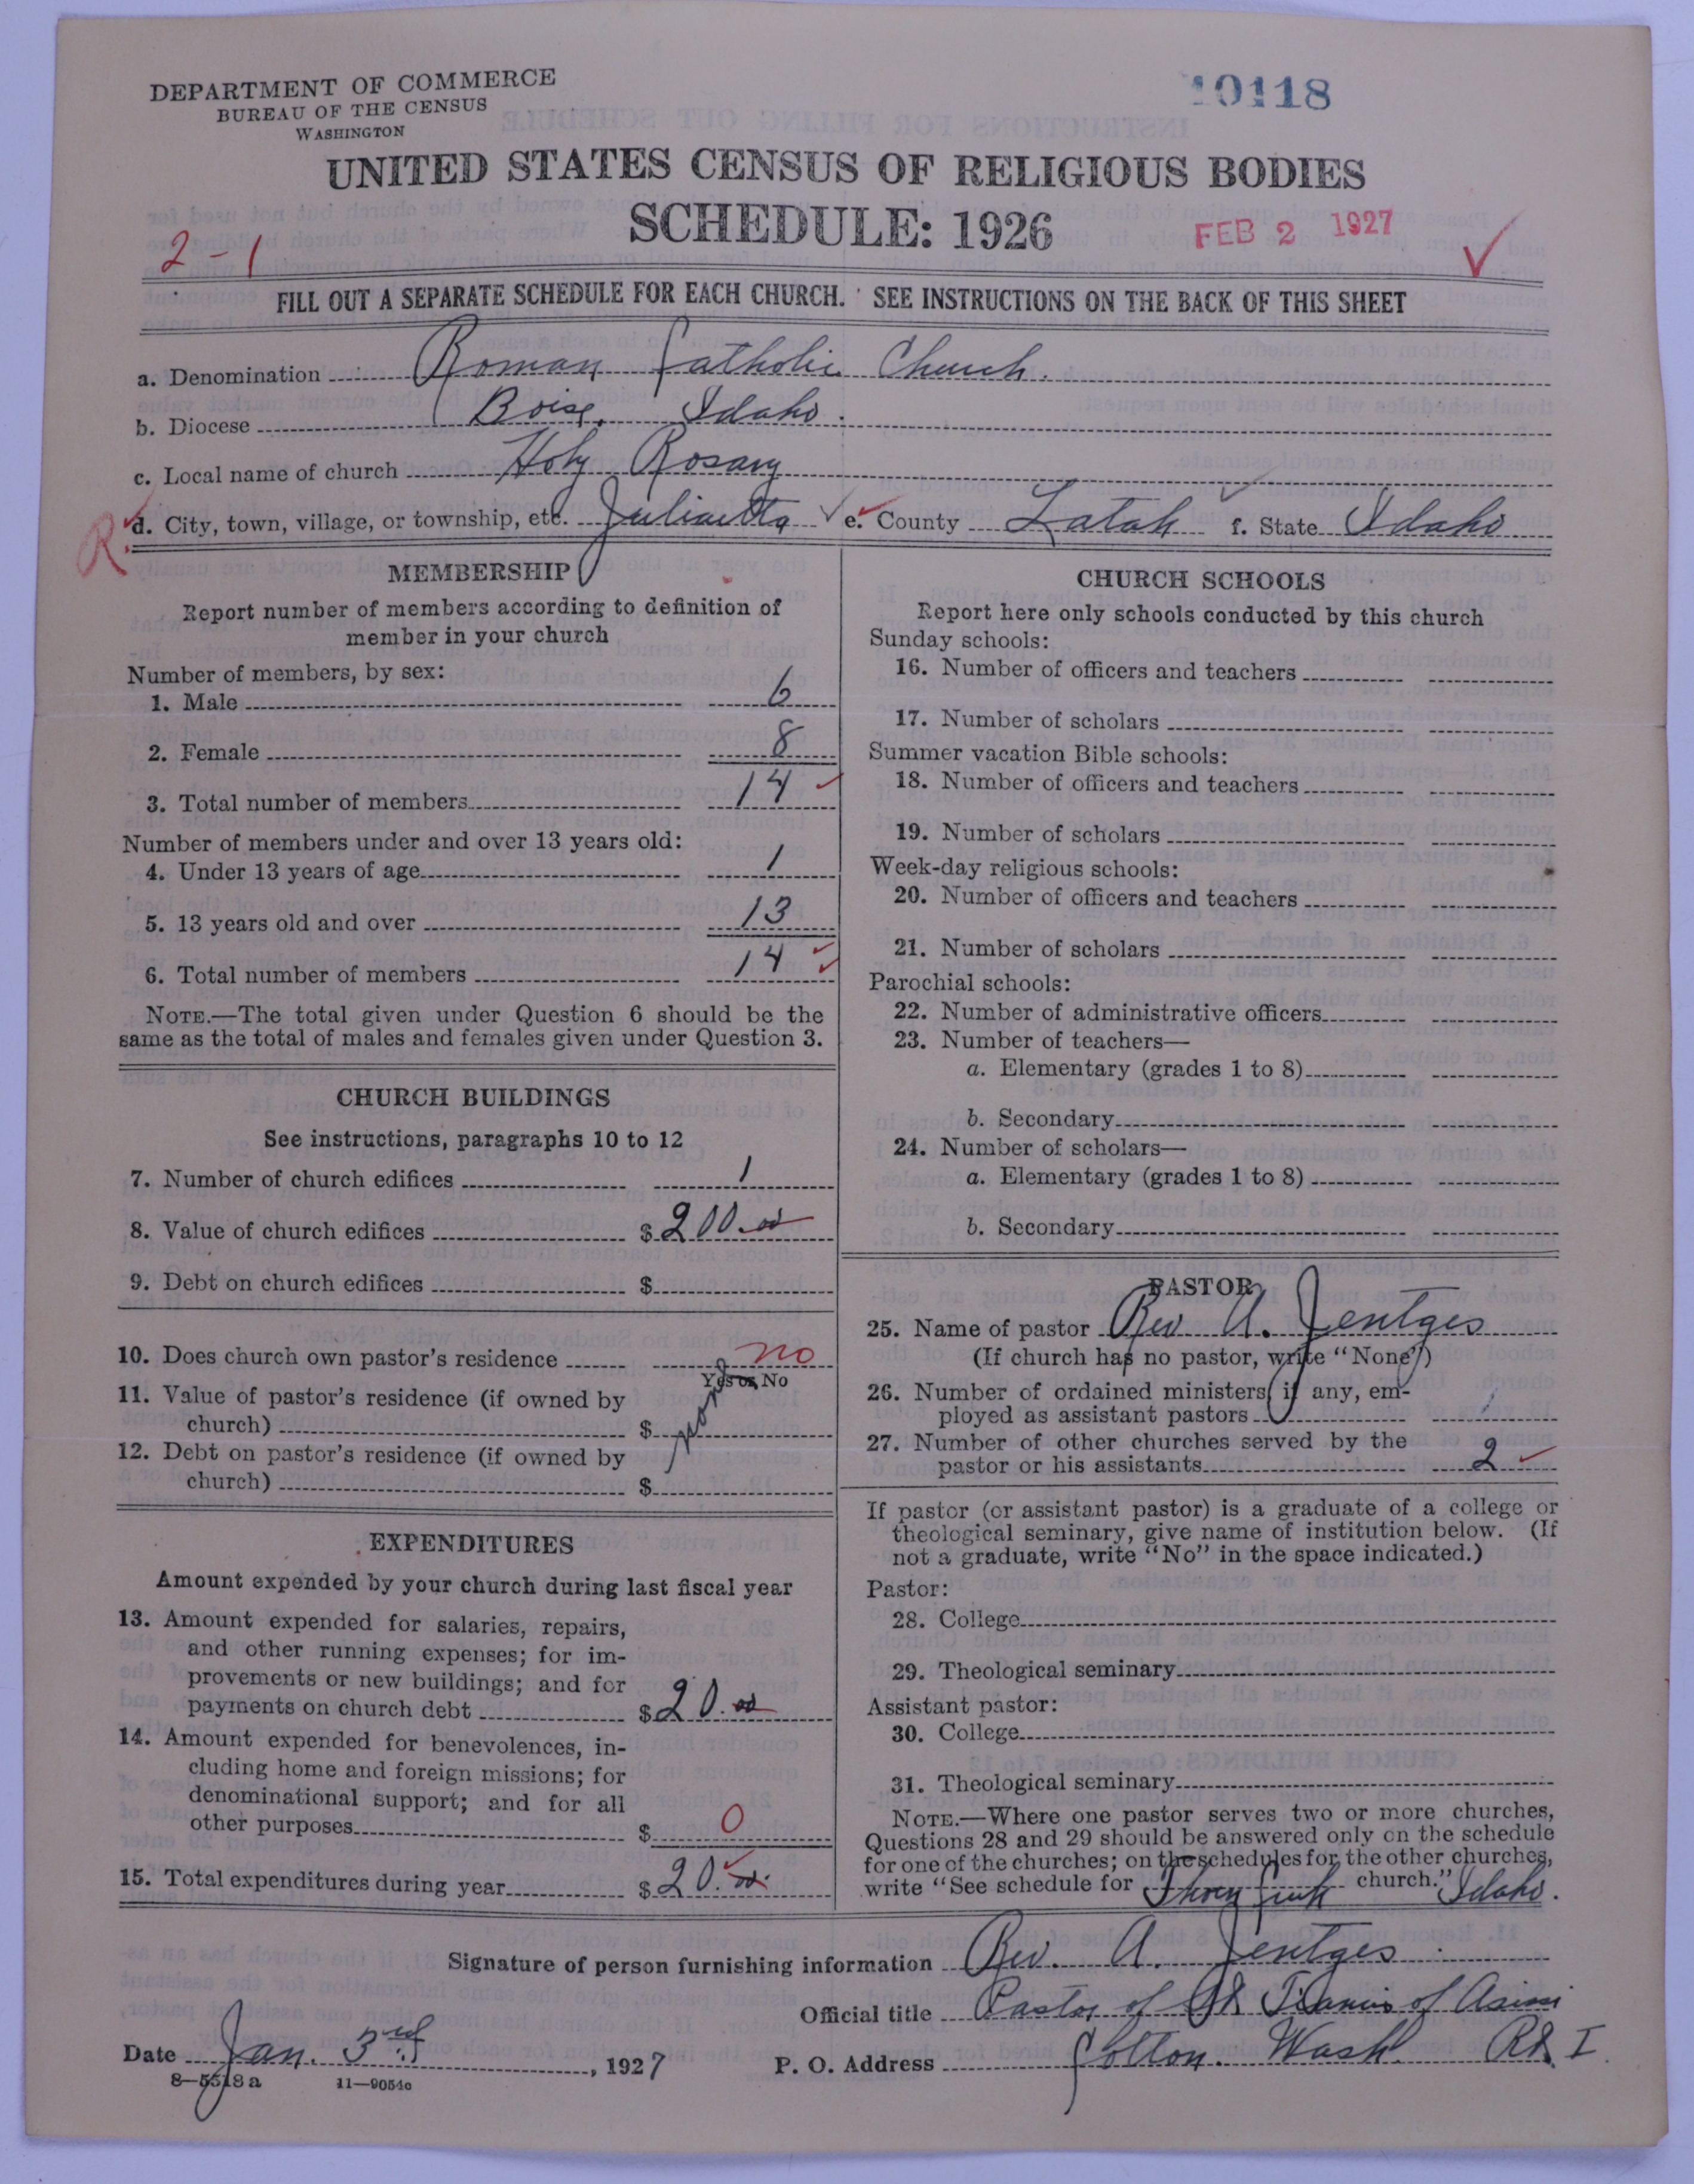 DEPARTMENT OF COMMERCE
BUREAU OF THE CENSUS
WASHINGTON
10118
UNITED STATES CENSUS OF RELIGIOUS BODIES
SCHEDULE: 1926
FEB 2 1927
2-1
FILL OUT A SEPARATE SCHEDULE FOR EACH CHURCH. SEE INSTRUCTIONS ON THE BACK OF THIS SHEET
a. Denomination Roman Catholic Church.
b. Diocese Boise, Idaho.
c. Local name of church Holy Rosary
R d. City, town, village, or township, etc. Juliaetta e. County Latah f. State Idaho
MEMBERSHIP
Report number of members according to definition of
member in your church
Number of members, by sex:
1. Male 6
2. Female 8
3. Total number of members 14
Number of members under and over 13 years old:
4. Under 13 years of age 1
5. 13 years old and over 13
6. Total number of members 14
NOTE.—The total given under Question 6 should be the
same as the total of males and females given under Question 3.
CHURCH BUILDINGS
See instructions, paragraphs 10 to 12
7. Number of church edifices 1
8. Value of church edifices $200.00
9. Debt on church edifices $
10. Does church own pastor's residence no
Yes or No
11. Value of pastor's residence (if owned by
church) $
12. Debt on pastor's residence (if owned by
church) $
EXPENDITURES
Amount expended by your church during last fiscal year
13. Amount expended for salaries, repairs,
and other running expenses; for im-
provements or new buildings; and for
payments on church debt $20.00
14. Amount expended for benevolences, in-
cluding home and foreign missions; for
denominational support; and for all
other purposes $0
15. Total expenditures during year $20.00
CHURCH SCHOOLS
Report here only schools conducted by this church
Sunday schools:
16. Number of officers and teachers
17. Number of scholars
Summer vacation Bible schools:
18. Number of officers and teachers
19. Number of scholars
Week-day religious schools:
20. Number of officers and teachers
21. Number of scholars
Parochial schools:
22. Number of administrative officers
23. Number of teachers—
a. Elementary (grades 1 to 8)
b. Secondary
24. Number of scholars—
a. Elementary (grades 1 to 8)
b. Secondary
PASTOR
25. Name of pastor Rev A. Jentges
(If church has no pastor, write "None")
26. Number of ordained ministers, if any, em-
ployed as assistant pastors
27. Number of other churches served by the
pastor or his assistants 2
If pastor (or assistant pastor) is a graduate of a college or
theological seminary, give name of institution below. (If
not a graduate, write "No" in the space indicated.)
Pastor:
28. College
29. Theological seminary
Assistant pastor:
30. College
31. Theological seminary
NOTE.—Where one pastor serves two or more churches,
Questions 28 and 29 should be answered only on the schedule
for one of the churches; on the schedules for the other churches,
write "See schedule for church." Idaho.
Signature of person furnishing information Rev. A. Jentges
Official title Pastor of St Francis of Asissi
Date Jan. 3rd, 1927 P. O. Address Colton. Wash. R I
8-5518a 11-9054c